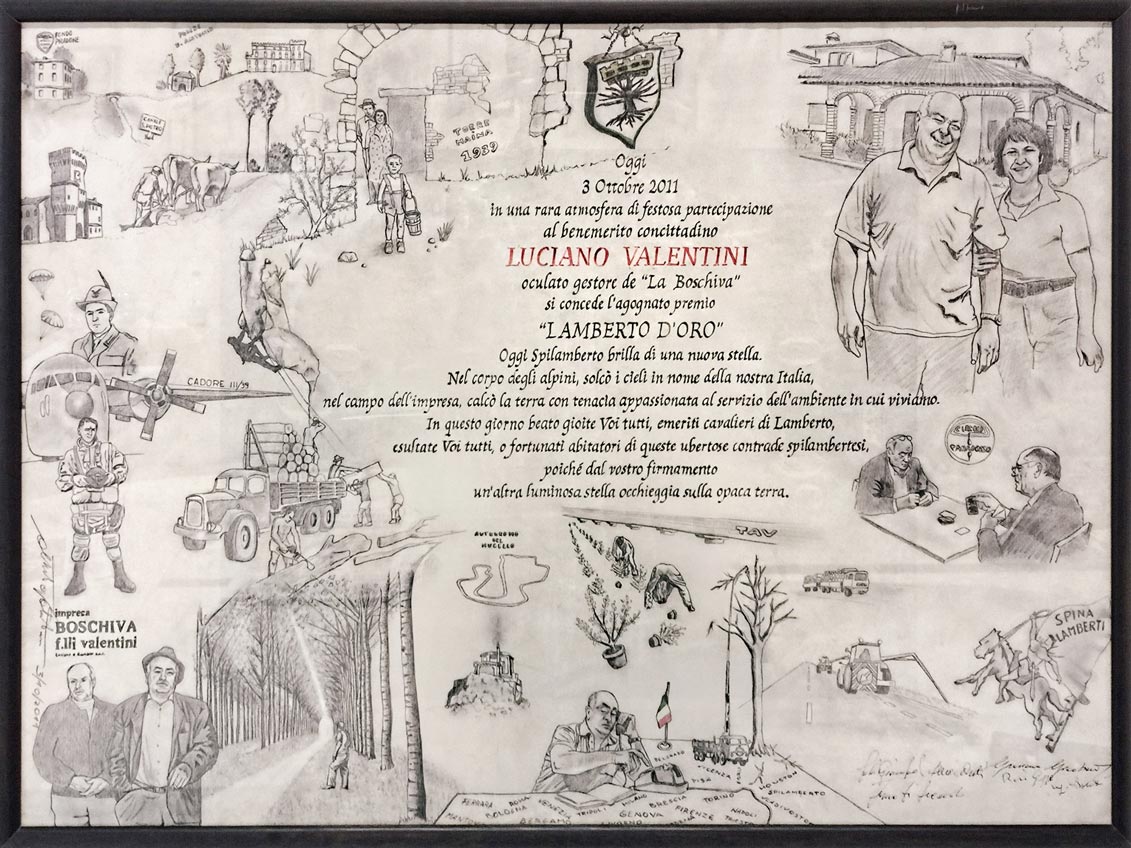 FONDO
CANALE
TORRE
NAIMA
1939
Oggi
3 Ottobre 2011
in una rara atmosfera di festosa partecipazione
al benemerito concittadino
LUCIANO VALENTINI
oculato gestore de "La Boschiva"
si concede l'agognato premio
"LAMBERTO D'ORO"
Oggi Spilamberto brilla di una nuova stella.
Nel corpo degli alpini, solcò i cieli in nome della nostra Italia,
nel campo dell'impresa, calcò la terra con tenacia appassionata al servizio dell'ambiente in cui viviamo.
In questo giorno beato gioite Voi tutti, emeriti cavalieri di Lamberto,
esultate Voi tutti, o fortunati abitatori di queste ubertose contrade spilambertesi,
poiché dal vostro firmamento
un'altra luminosa stella occhieggia sulla opaca terra.
CADORE III/39
AUTODROMO
DEL
MUGELLO
TAV
impresa
BOSCHIVA
f.lli valentini
SPINA
LAMBERTI
FERRARA ROMA VENEZIA TRIPOLI MILANO BRESCIA TORINO HOUSTON
SPILAMBERTO
BOLOGNA GENOVA FIRENZE NAPOLI
BERGAMO